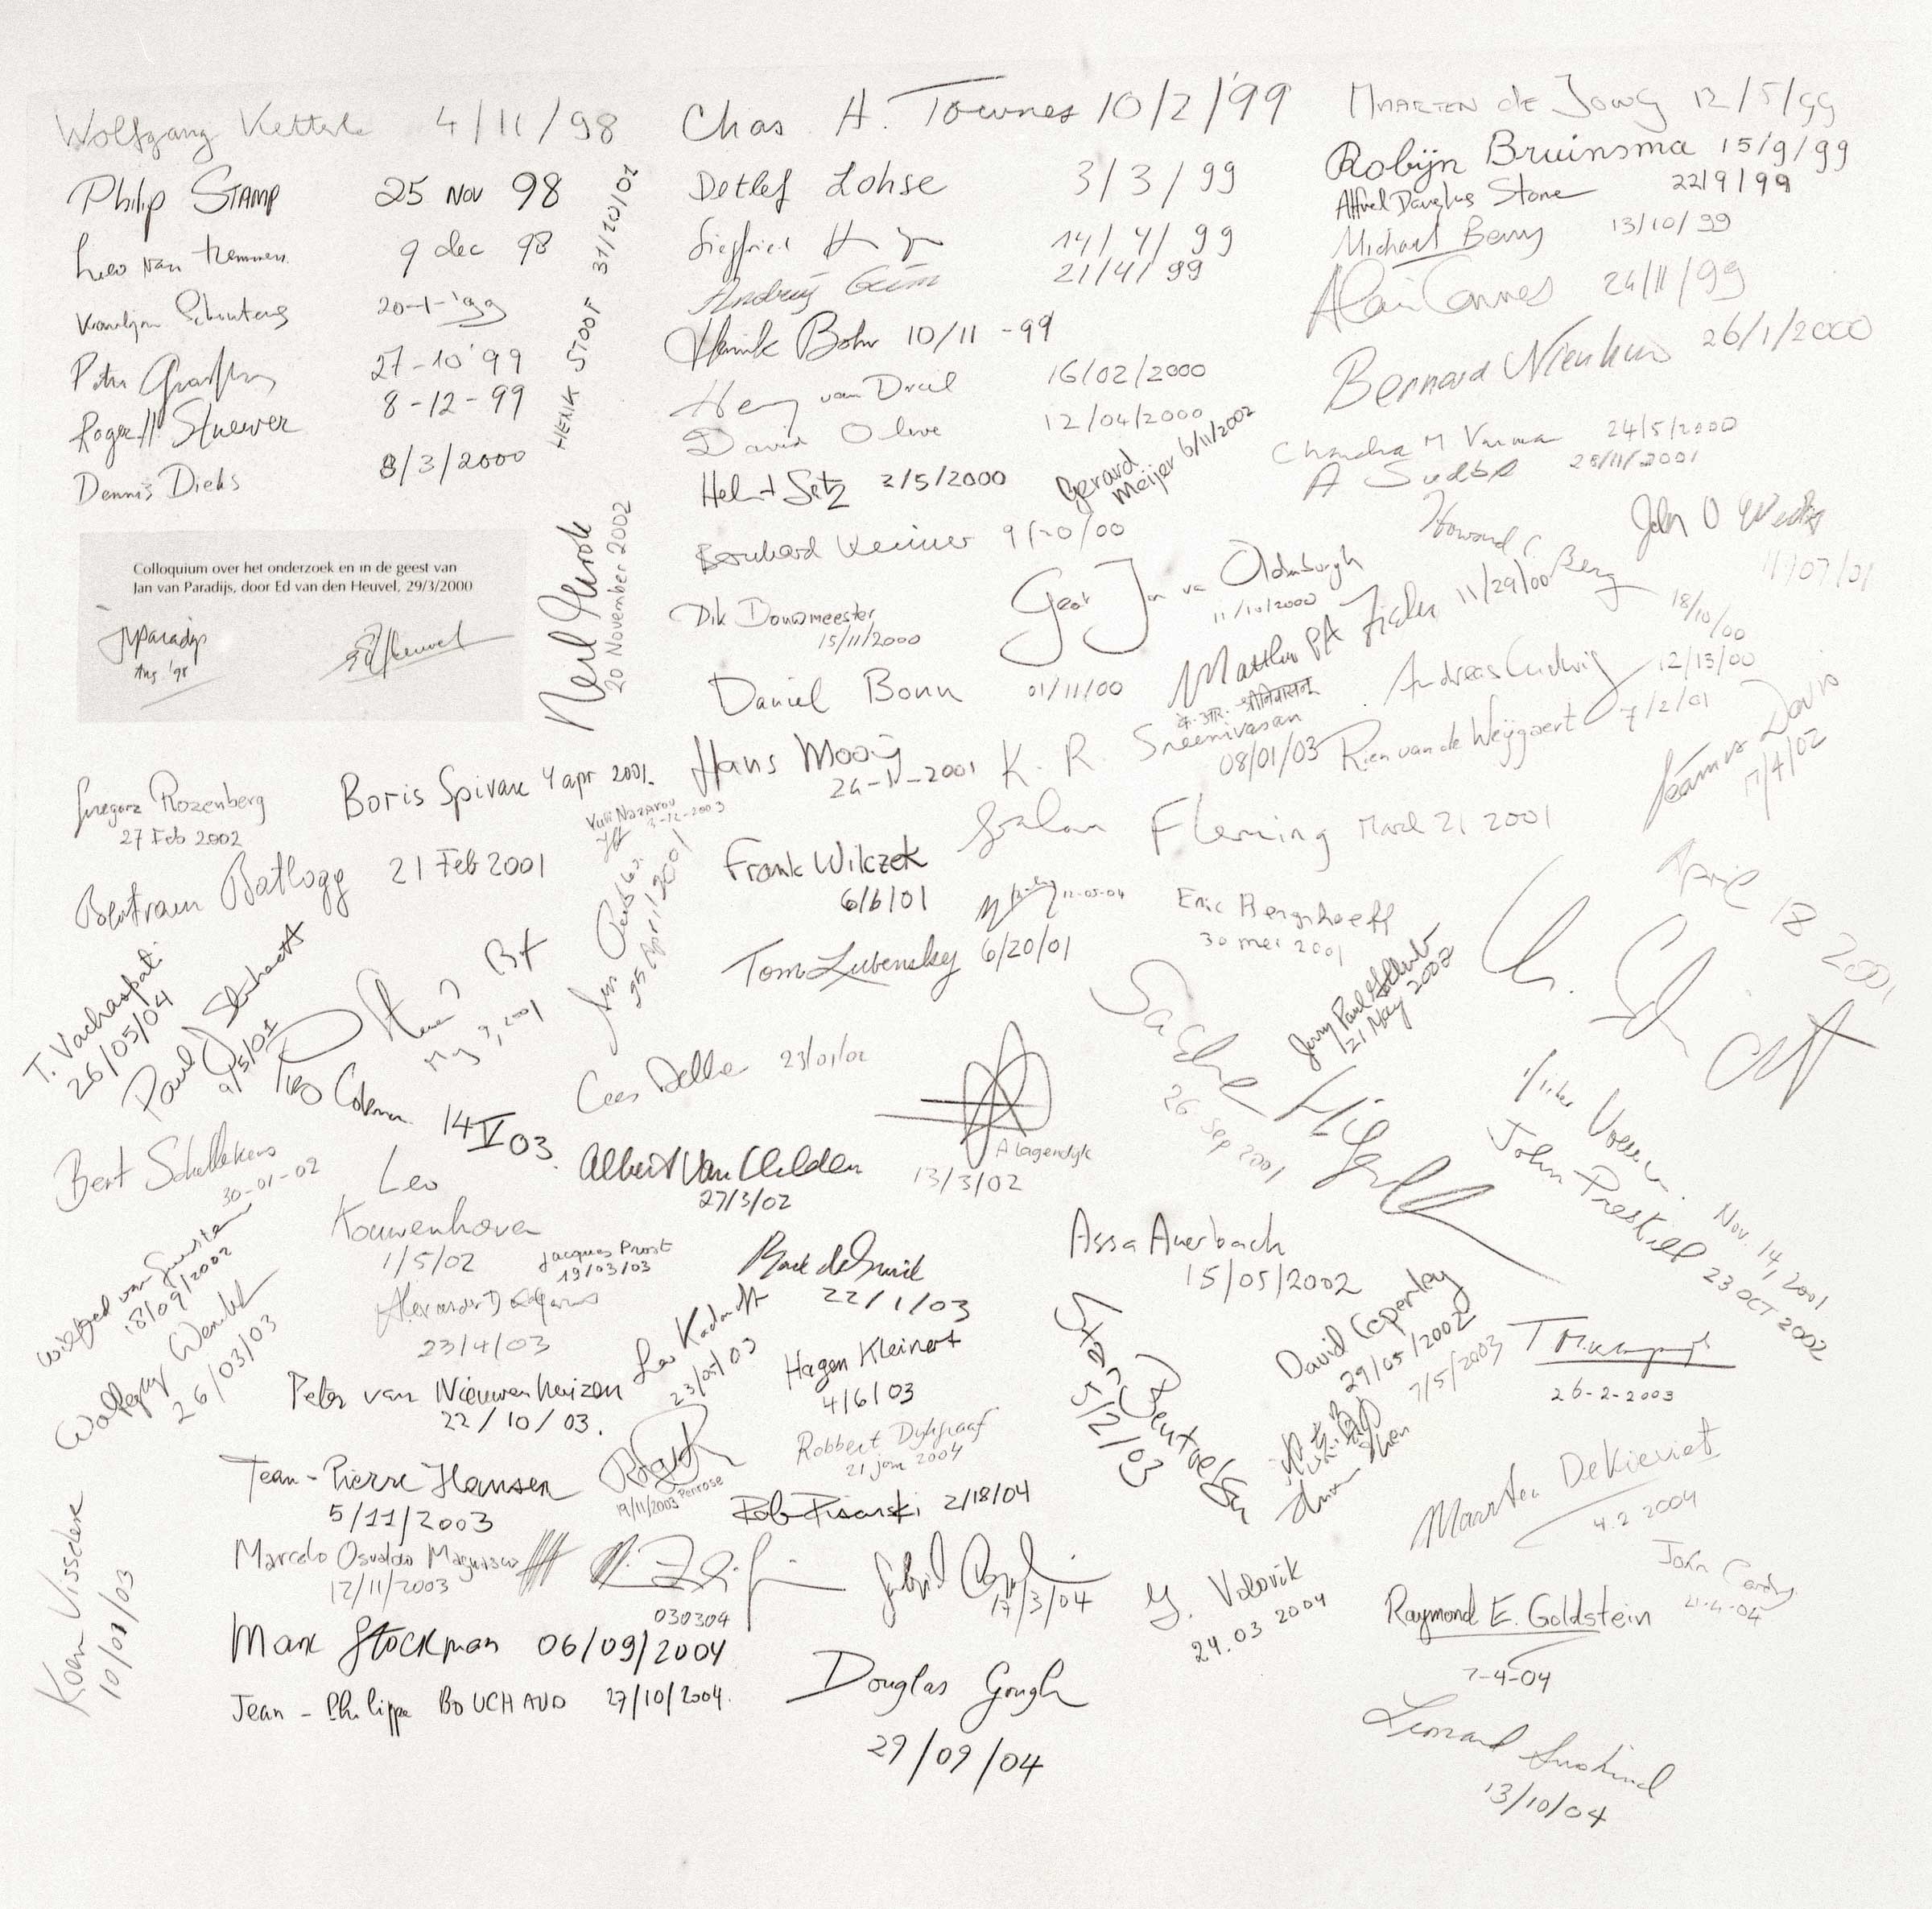 Wolfgang Ketterle 4/11/98
Philip STAMP 25 NOV 98
Leo van Hemmen 9 dec 98
Kareljan Schoutens 20-1-'99
Peter 27-10'99
Roger H. Stuewer 8-12-99
Dennis Dieks 8/3/2000
HENK STOOF 31/10/02
Colloquium over het onderzoek en in de geest van
Jan van Paradijs, door Ed van den Heuvel, 29/3/2000
JvParadijs
Aug '98
EvdHeuvel
Neil
20 November 2002
Chas. H. Townes 10/2/'99
Detlef Lohse 3/3/99
Siegfried 14/4/99
Andrey Geim 21/4/99
Henrik Bohr 10/11-99
Henry van Driel 16/02/2000
David Olive 12/04/2000
Helmut Satz 2/5/2000
Gerard
Meijer 6/11/2002
Bernhard 9/10/00
Dik Bouwmeester
15/11/2000
Geert Jan van Oldenborgh
11/10/2000
Daniel Bonn 01/11/00
Matthew PA Fisher 11/29/00
Hans Mooij
24-1-2001
K. R. Sreenivasan
08/01/03
MAARTEN de Jong 12/5/99
Robijn Bruinsma 15/9/99
Alfred Douglas Stone 22/9/99
Michael Berry 13/10/99
Alain Connes 24/11/99
Bernard Nienhuis 26/1/2000
Chandra M Varma 24/5/2000
A Sudbø 28/11/2001
Howard C. Berg
18/10/00
John
11/07/01
Andreas Ludwig 12/13/00
Rien van de Weijgaert 7/2/01
Séamus Davis
17/4/02
Grzegorz Rozenberg
27 Feb 2002
Boris Spivak 4 apr 2001.
Yuli Nazarov
3-12-2003
Graham Fleming March 21 2001
Bertram Batlogg 21 Feb 2001
25 April 2001
Frank Wilczek
6/6/01
12-05-04
Eric Bergshoeff
30 mei 2001
Tom Lubensky 6/20/01
April 18 2001
T. Vachaspati
26/05/04
Paul J Steinhardt
9/5/01
May 9, 2001
Piers Coleman 14 V 03.
Cees Dekker 23/01/02
A Lagendijk
13/3/02
Sascha Hilgenfeldt
26 Sep 2001
Jerry Paul Gollub
21 May 2002
Nov. 14, 2001
John Preskill 23 OCT 2002
Bert Schellekens
30-01-02
Leo
Kouwenhoven
1/5/02
Albert Van Helden
27/3/02
Assa Auerbach
15/05/2002
Wilfred van Gunsteren
18/09/2002
Jacques Prost
19/03/03
Bart de Smit
22/1/03
Alexander
23/4/03
Wolfgang
26/03/03
Leo Kadanoff
23/05/03
Hagen Kleinert
4/6/03
Stan Bentvelsen
5/2/03
David Ceperley
29/05/2002
7/5/2003
26-2-2003
Peter van Nieuwenhuizen
22/10/03.
Jean-Pierre Hansen
5/11/2003
19/11/2003 Penrose
Robbert Dijkgraaf
21 jan 2004
Rob Pisarski 2/18/04
Maarten DeKieviet
4.2 2004
Marcelo Osvaldo Magnasco
12/11/2003
030304
Gabriel
17/3/04
G. Volovik
24.03 2004
John Cardy
21-4-04
Raymond E. Goldstein
7-4-04
Koen Visscher
10/09/03
Mark Stockman 06/09/2004
Jean-Philippe BOUCHAUD 27/10/2004.
Douglas Gough
29/09/04
Leonard Susskind
13/10/04